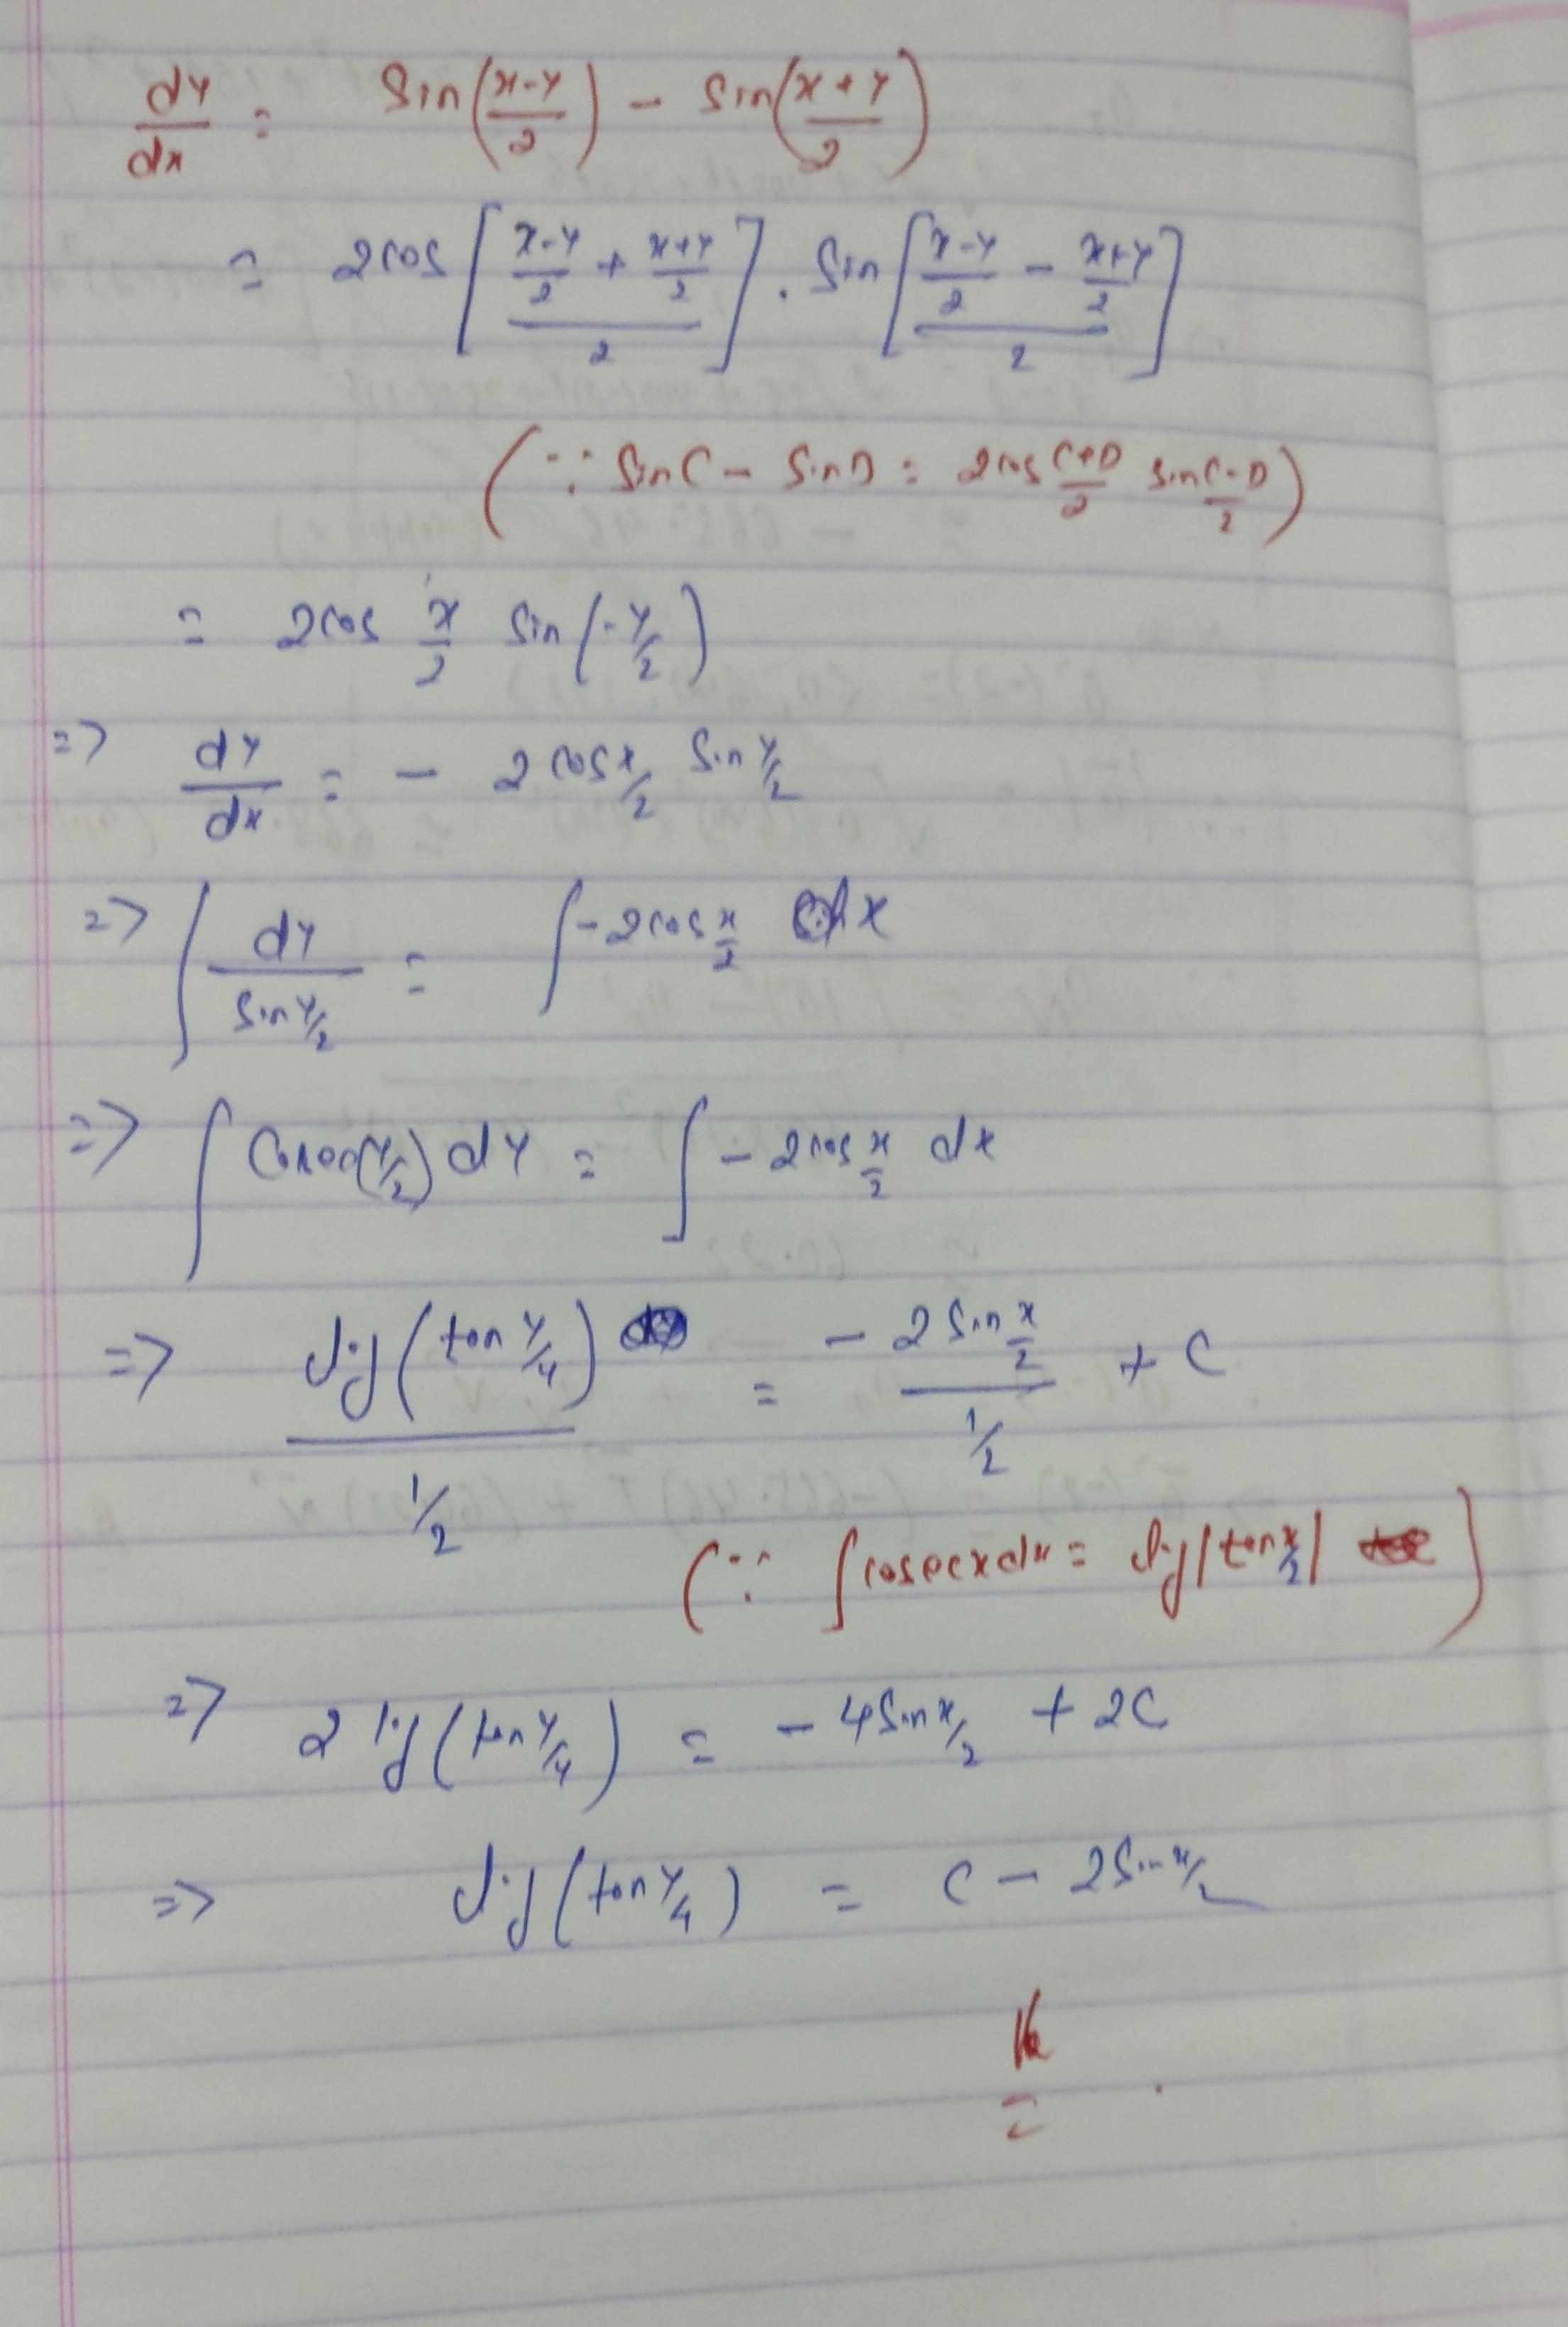 dy/dx = Sin((x-y)/2) - Sin((x+y)/2)
= 2cos[((x-y)/2 + (x+y)/2)/2] . Sin[((x-y)/2 - (x+y)/2)/2]
(∵ SinC - SinD = 2cos (C+D)/2 sin (C-D)/2)
= 2cos x/2 Sin(-y/2)
=> dy/dx = - 2cos x/2 Sin y/2
=> ∫ dy/(Sin y/2) = ∫ -2cos x/2 dx
=> ∫ Cosec(y/2) dy = ∫ -2cos x/2 dx
=> log(tan y/4)/(1/2) = - (2 Sin x/2)/(1/2) + C
(∵ ∫cosecx dx = log|tan x/2|)
=> 2 log(tan y/4) = - 4Sin x/2 + 2C
=> log(tan y/4) = C - 2Sin x/2